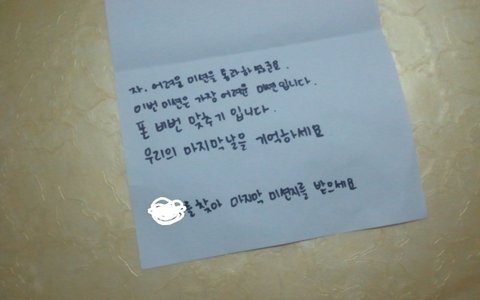 자. 어려운 미션을 통과하셨군요.
이번 미션은 가장 어려운 미션입니다.
폰 비번 맞추기 입니다.
우리의 마지막날을 기억하세요
를 찾아 마지막 미션지를 받으세요